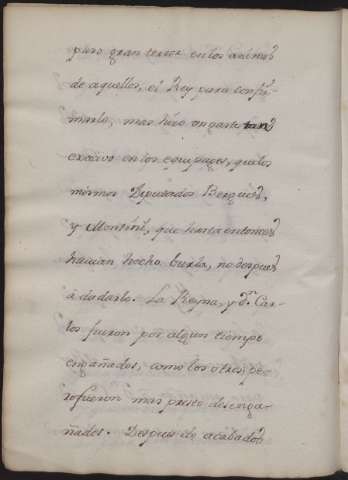 puso gran terror en los animos
de aquellos, el Rey para confir-
marlo, mas hizo un gasto tan
excesivo en los equipages, que los
mismos Diputados Bergues,
y Montiñi, que hasta entonces
havian hecho burla, no despues
à dudarlo. La Reyna, y Dn. Car-
los fueron por algun tiempo
engañados, como los otros pe-
ro fueron mas presto desenga-
ñados. Despues de acabados